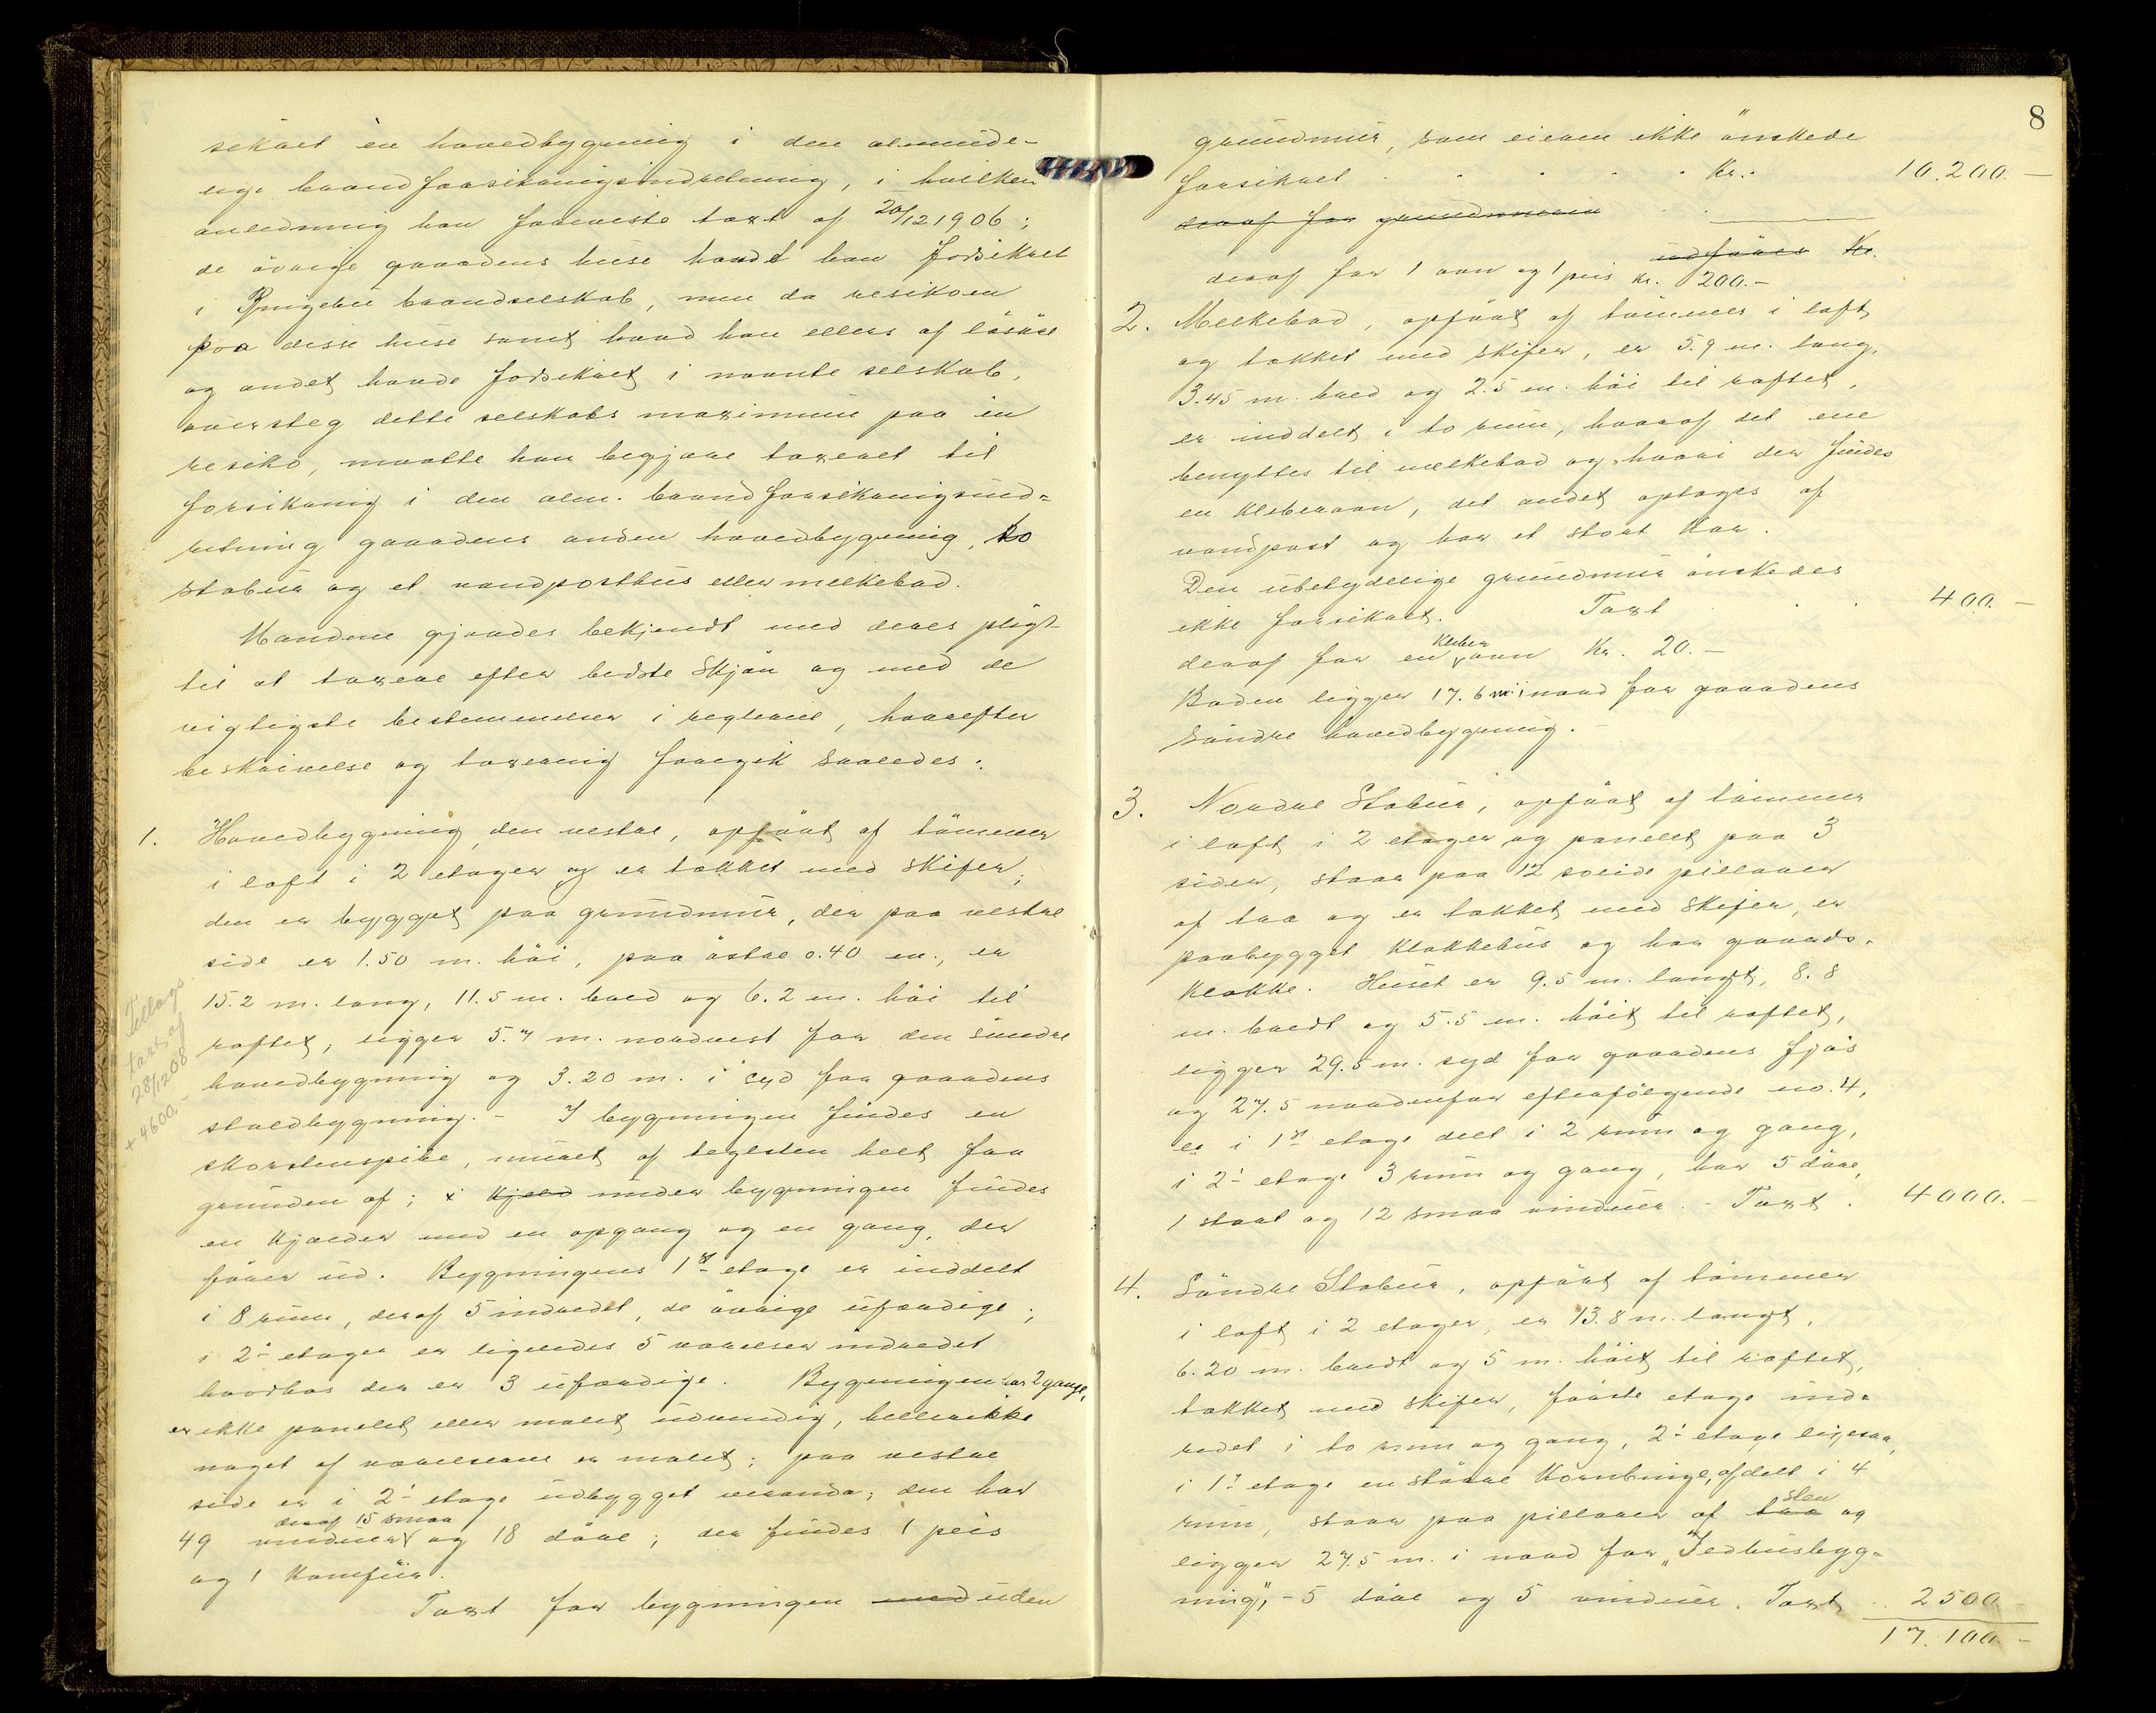 sikret en hovedbygning i den alminde-
lige brandforsikringsindretning, i hvilken
anledning han foreviste taxt af 20/12 1906;
de øvrige gaardens huse havde han forsikret
i Ringebu brandselskab, men da resikoen
paa disse huse samt hvad han ellers af løsøre
og andet havde forsikret i nævnte selskab,
oversteg dette selskabs maximum paa en
resiko, maatte han begjære taxeret til
forsikring i den alm. brandforsikringsind-
retning gaardens anden hovedbygning, to
stabur og et vandposthus eller melkebod.
Mændene gjordes bekjendt med deres pligt
til at taxere efter bedste skjøn og med de
vigtigste bestemmelser i reglerne, hvorefter
beskrivelse og taxering foregik saaledes:
1. Hovedbygning, den vestre, opført af tømmer
i loft i 2 etager og er tækket med skifer;
den er bygget paa grundmur, der paa vestre
side er 1.50 m. høi, paa østre 0.40 m., er
15.2 m. lang, 11.5 m. bred og 6.2 m. høi til
raftet, ligger 5.7 m. nordvest for den søndre
hovedbygning og 3.20 m. i syd for gaardens
staldbygning. - I bygningen findes en
skorstenspibe, muret af teglsten helt fra
grunden af; i kjeld under bygningen findes
en kjælder med en opgang og en gang, der
fører ud. Bygningens 1ste etage er inddelt
i 8 rum, deraf 5 indredet, de øvrige ufærdige;
i 2- etage er ligeledes 5 værelser indredet
hvorhos der er 3 ufærdige. Bygningen har 2 gange,
er ikke panelet eller malet udvendig, heller ikke
noget af værelserne er malet; paa vestre
side er i 2- etage udbygget veranda; den har
deraf 15 smaa
49 vinduer og 18 døre; der findes 1 peis
og 1 komfür.
Taxt for bygningen med uden
Tillægs
taxt af
28/12 08
+ 4600.-
8
grundmur, som eieren ikke ønskede
forsikret . . . . . Kr. 10.200.-
deraf for grundmuren
udføres Kr.
deraf for 1 ovn og 1 peis Kr. 200.-
2. Melkebod, opført af tømmer i loft
og tækket med skifer, er 5.9 m. lang,
3.45 m. bred og 2.5 m. høi til raftet,
er inddelt i to rum, hvoraf det ene
benyttes til melkebod og hvori der findes
en kleberovn, det andet optages af
vandpost og har et stort kar.
Den ubetydelige grundmur ønskedes
ikke forsikret. Taxt . . 400.-
kleber
deraf for en ovn Kr. 20.-
Boden ligger 17.6 m. i nord for gaardens
søndre hovedbygning.-
3. Nordre Stabur, opført af tømmer
i loft i 2 etager og panelet paa 3
sider, staar paa 12 solide pillarer
af træ og er tækket med skifer, er
paabygget klokkehus og har gaards-
klokke. Huset er 9.5 m. langt, 8.8
m. bredt og 5.5 m. høit til raftet,
ligger 29.5 m. syd for gaardens fjøs
og 27.5 nordenfor efterfølgende no. 4,
er i 1ste etage delt i 2 rum og gang,
i 2- etage 3 rum og gang, har 5 døre,
1 stort og 12 smaa vinduer. - Taxt . 4000.-
4. Søndre Stabur, opført af tømmer
i loft i 2 etager, er 13.8 m. langt,
6.20 m. bredt og 5 m. høit til raftet,
tækket med skifer, første etage ind-
redet i to rum og gang, 2- etage ligesaa,
i 1- etage en større kornbinge, afdelt i 4
sten
rum, staar paa pillarer af træ og
ligger 27.5 m. i nord for "Ildhusbyg-
ning", - 5 døre og 5 vinduer. Taxt . . 2500.-
17.100.-